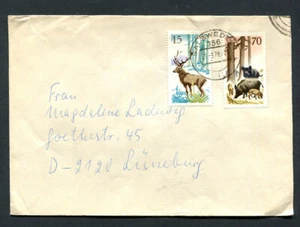 15
70
Frau
Magdalene Ladwig
Goethestr. 45
D-2120 Lüneburg